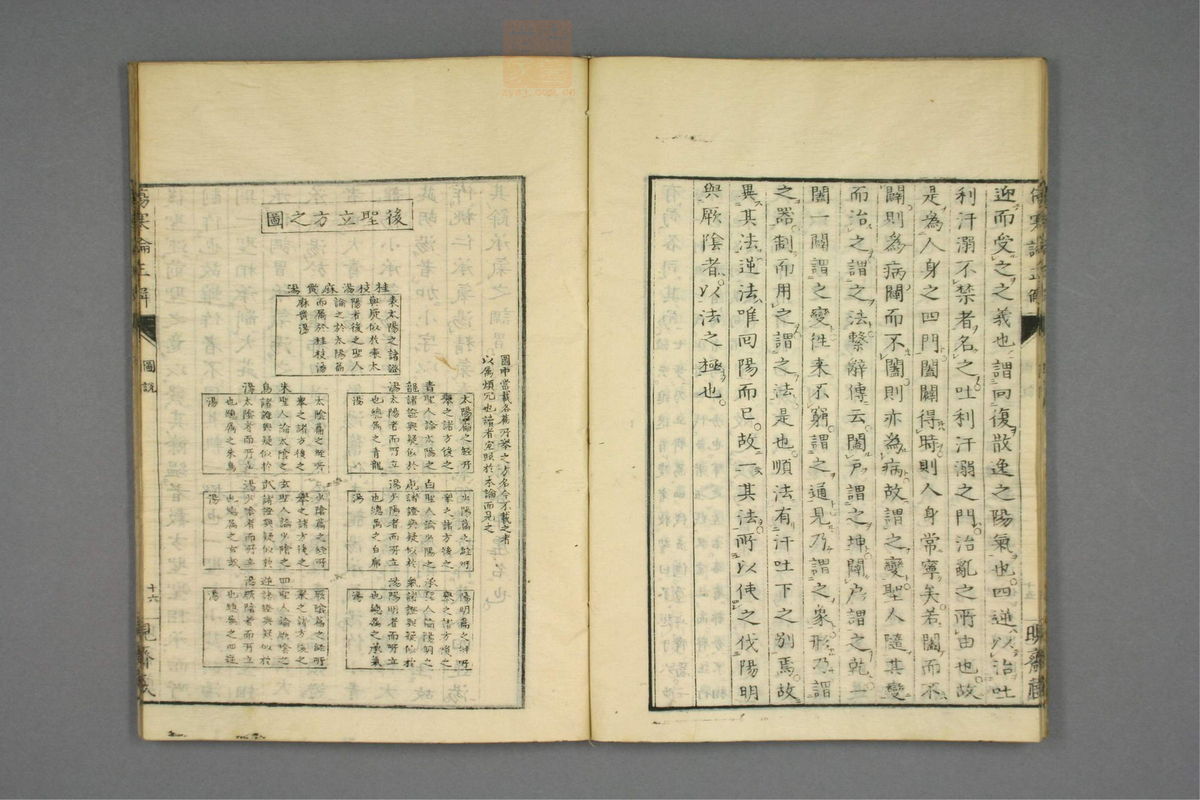 迎而受之之義也謂回復散逸之陽氣也四逆以治吐
利汗溺不禁者名之吐利汗溺之門治亂之所由也故
是為人身之四門闔闢得時則人身常寧矣若闔而不
闢則為病闢而不闔則亦為病故謂之變聖人隨其變
而治之謂之法繫辭傳云闔戶謂之坤闢戶謂之乾一
闔一闢謂之變往來不窮謂之通見乃謂之象形乃謂
之器制而用之謂之法是也順法有汗吐下之別焉故
異其法逆法唯回陽而已故一其法所以使之伐陽明
與厥陰者以法之極也
圖說
十六
後聖立方之圖
圖中當載各篇所舉之方名今不載之者
以為煩冗也讀者宜照於本論而見之
桂枝湯麻黃湯
奉太陽之諸證
與疑似於奉太
陽者後之聖人
論之於太陽篇
而屬於桂枝湯
麻黃湯
太陽篇之經所
舉之諸方後之
聖人論太陽之
諸證與疑似於
太陽者而所立
也總屬之青龍
湯
青龍湯
少陽篇之經所
舉之諸方後之
聖人論少陽之
諸證與疑似於
少陽者而所立
也總屬之白虎
湯
白虎湯
陽明篇之經所
舉之諸方後之
聖人論陽明之
諸證與疑似於
陽明者而所立
也總屬之承氣
湯
承氣湯
太陰篇之經所
舉之諸方後之
聖人論太陰之
諸證與疑似於
太陰者而所立
也總屬之朱鳥
湯
朱鳥湯
少陰篇之經所
舉之諸方後之
聖人論少陰之
諸證與疑似於
少陰者而所立
也總屬之玄武
湯
玄武湯
厥陰篇之經所
舉之諸方後之
聖人論厥陰之
諸證與疑似於
厥陰者而所立
也總屬之四逆
湯
四逆湯